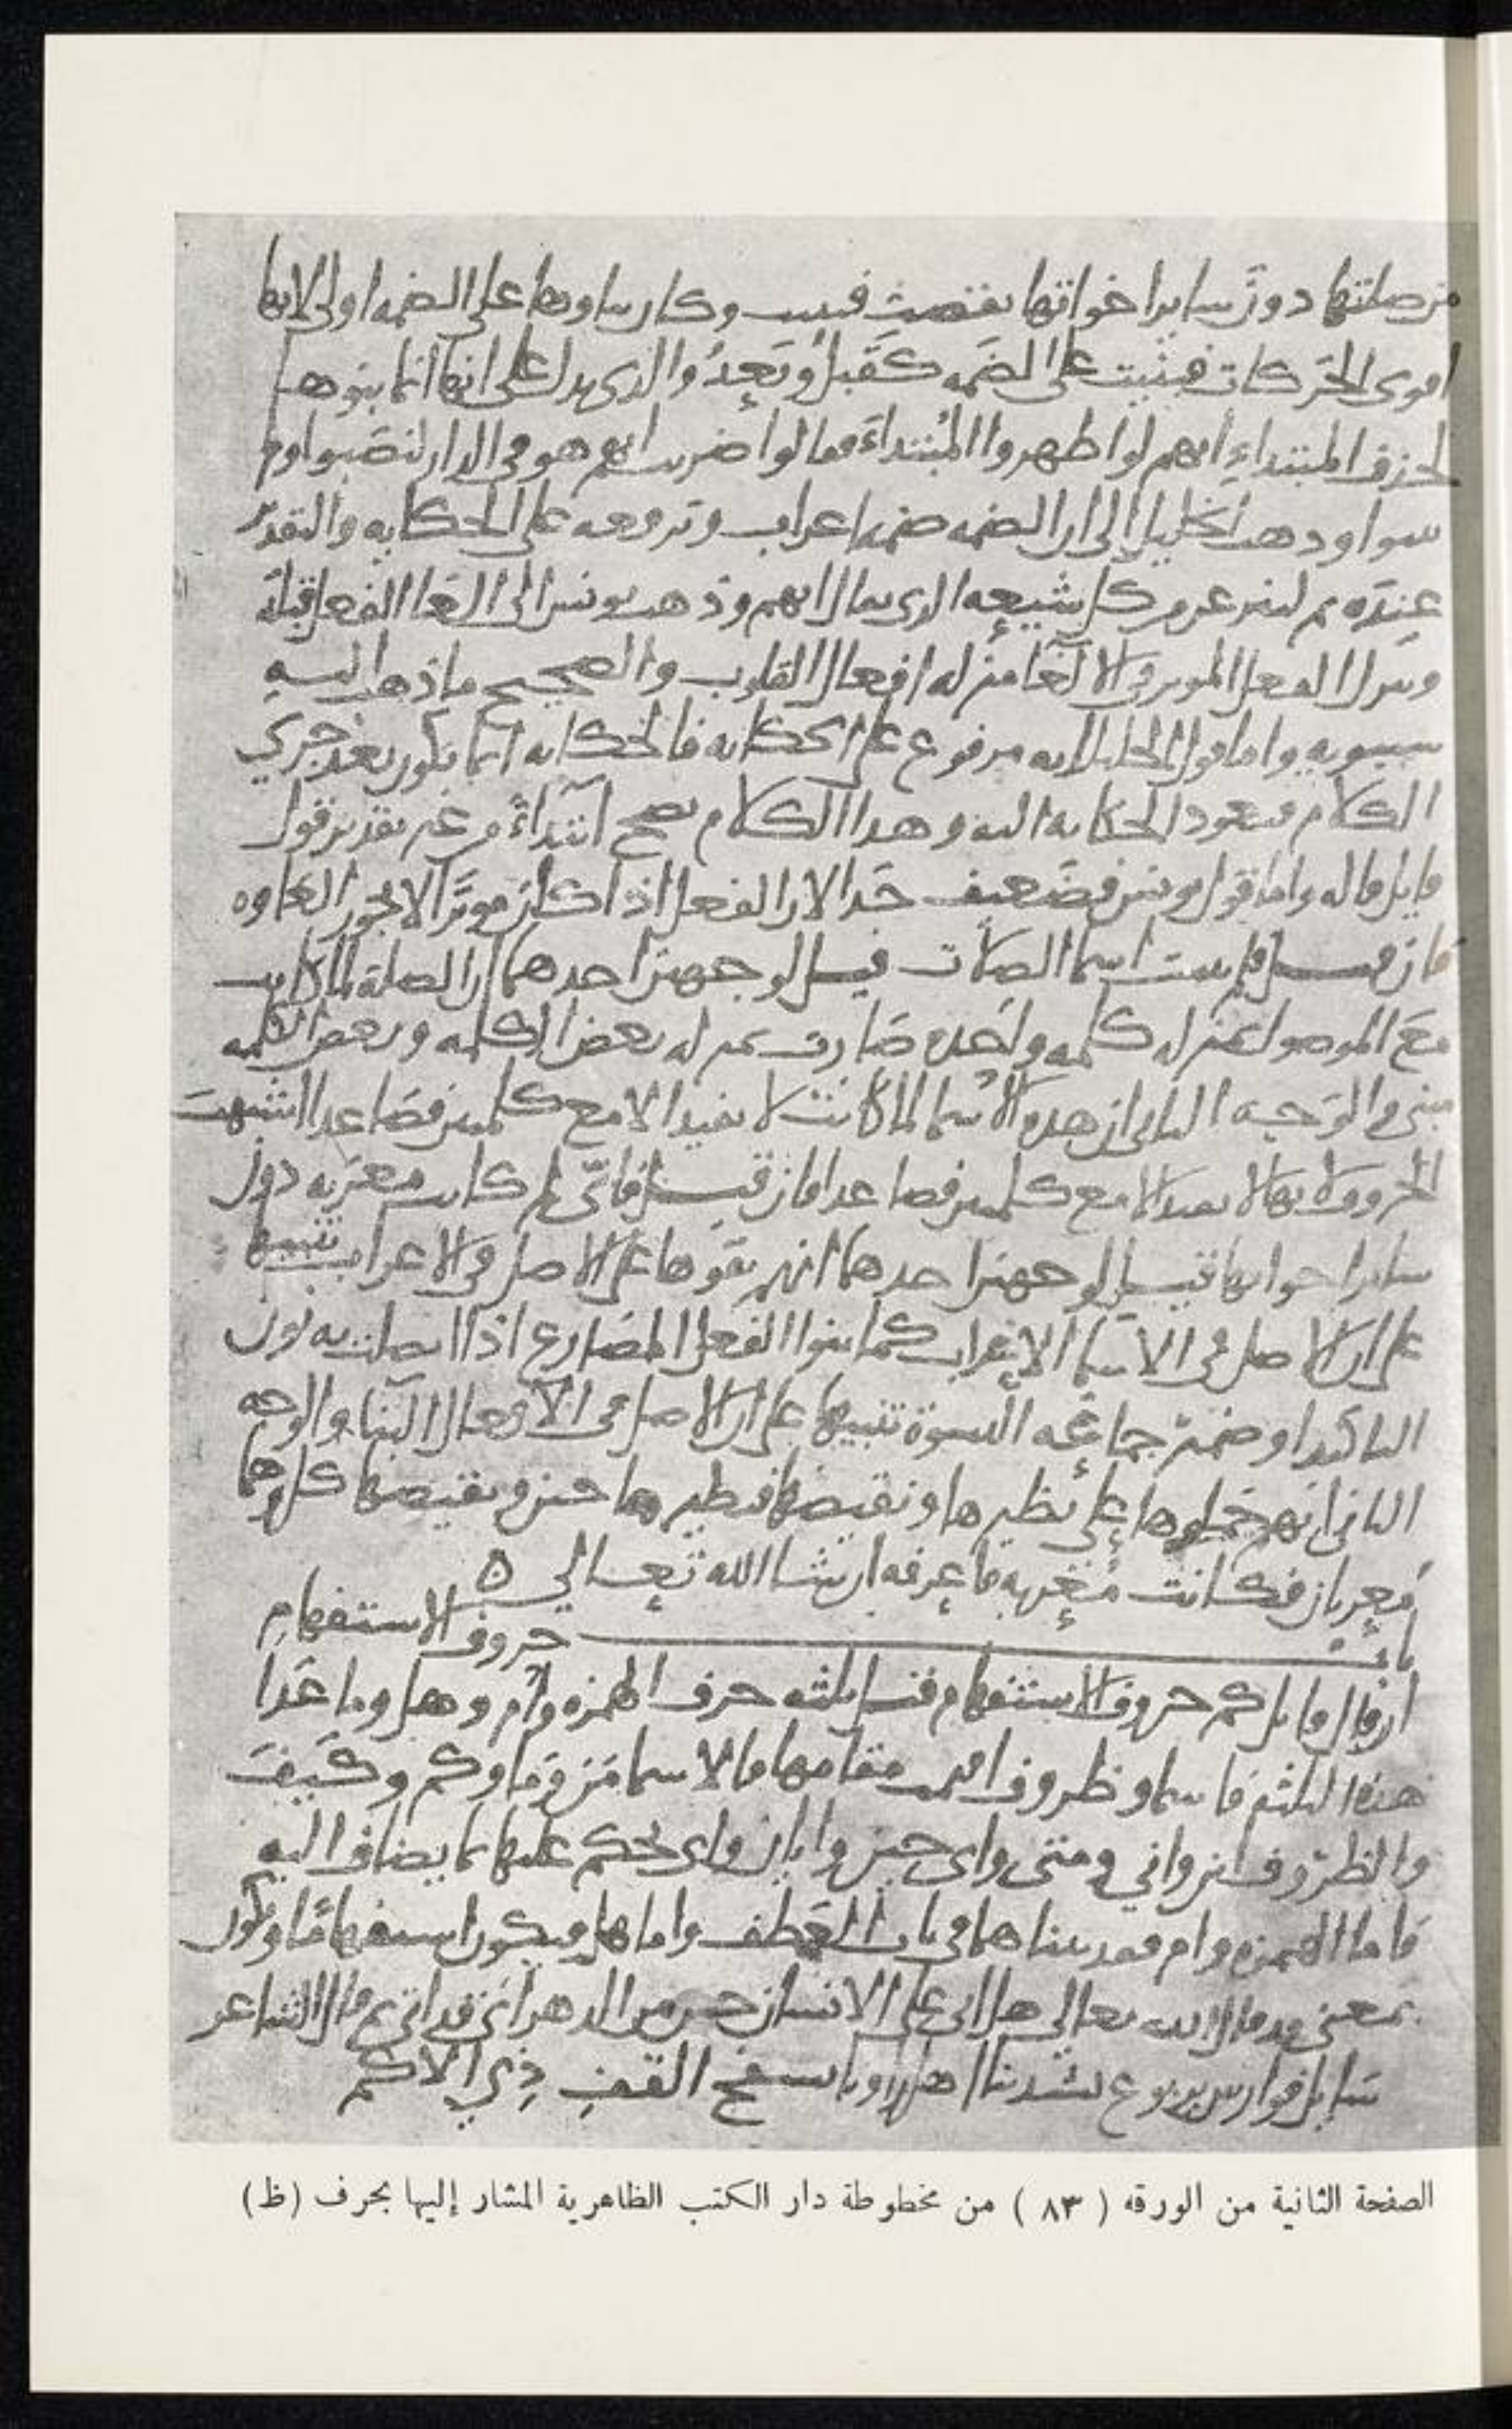 من صلتها دون ساير اخواتها نقصت فبنيت وكان بناوها على الضمه اولى لانها
اقوى الحركات فبنيت على الضمه كقبلُ وبَعدُ والذي يدل على انها انما بنوها
لحذف المبتداءِ انهم لو اظهروا المُبتداءَ فقالوا ضربت ايهم هو في الدار لنصَبوا ولم
وذهب الخليل الى ان الضمه ضمه اعراب وترفعه على الحكايه والتقدير
عِندَه ثم لننزعن من كل شيعهٍ الذي يقال ايهم وذهب يونس الى الغا الفعل قبله
وينزل الفعل الموثر في الالغا منزله افعال القلوب والصحيح ما ذهب اليهِ
سيبويه واما قول الخليل انه مرفوع على الحكايه فالحكايه انما تكون بعد جري
الكلام فتعود الحكايه اليه وهذا الكلام يصح ابتداءً من غير تقدير قول
قايل قاله واما قول يونس فضعيف جَدا لان الفعل اذا كان موثرًا لا يجوز الغاوه
فان قيل لم بنيت اسما الصلات قيل لوجهين احدهما ان الصلة لما كانت
مَع الموصول بمنزله كلمه واحده صارت بمنزله بعض الكلمه وبعض الكلمه
مبني والوَجه الثاني ان هذه الاسما لما كانت لا تفيد الا مع كلمتين فصَاعدا اشبهت
الحروف لانها لا تفيد الا مع كلمتين فصاعدا فان قيل فايّ لم كانت معربه دون
ساير اخواتها قيل لوجهين احدهما انهم بقوها على الاصل في الاعراب تنبيها
على ان الاصل في الاسما الاعراب كما بنوا الفعل المضارع اذا اتصلت به نون
التاكيد او ضميرُ جماعَه النسوة تنبيها على ان الاصل في الافعال البنا والوجه
الثاني انهم حَملوها على نظيرها ونقيضها فنظيرها جزو ونقيضها كل وهما
مُعربان فكانت مُعربه فاعرفه ان شا الله تعالي ه
بابُ حروف الاستفهامِ
ان قال قايل كم حروف الاستفهام قيل ثلثه حرف الهمزه وام وهل وما عَدا
هذه الثلثه فاسما وظروف اقيمت مقامها فالاسما مَن وَما وكم وكَيفَ
والظرُوف اين واني ومتى واي حين وايان واي يحكم عليها بما يضاف اليهِ
فاما الهمزه وام فقد بيناهما في باب العَطف واما هل فيكون استفهامًا وتكون
بمعنى قد قال الله تعالي هل اتى على الانسان حين من الدهر اي قد اتى ثم قال الشاعر
سَايل فوارس يربوع بشدتنا اهل راونا بسفح القفِ ذِي الاكم
الصفحة الثانية من الورقه ( ٨٣ ) من مخطوطة دار الكتب الظاهرية المشار إليها بحرف (ظ)